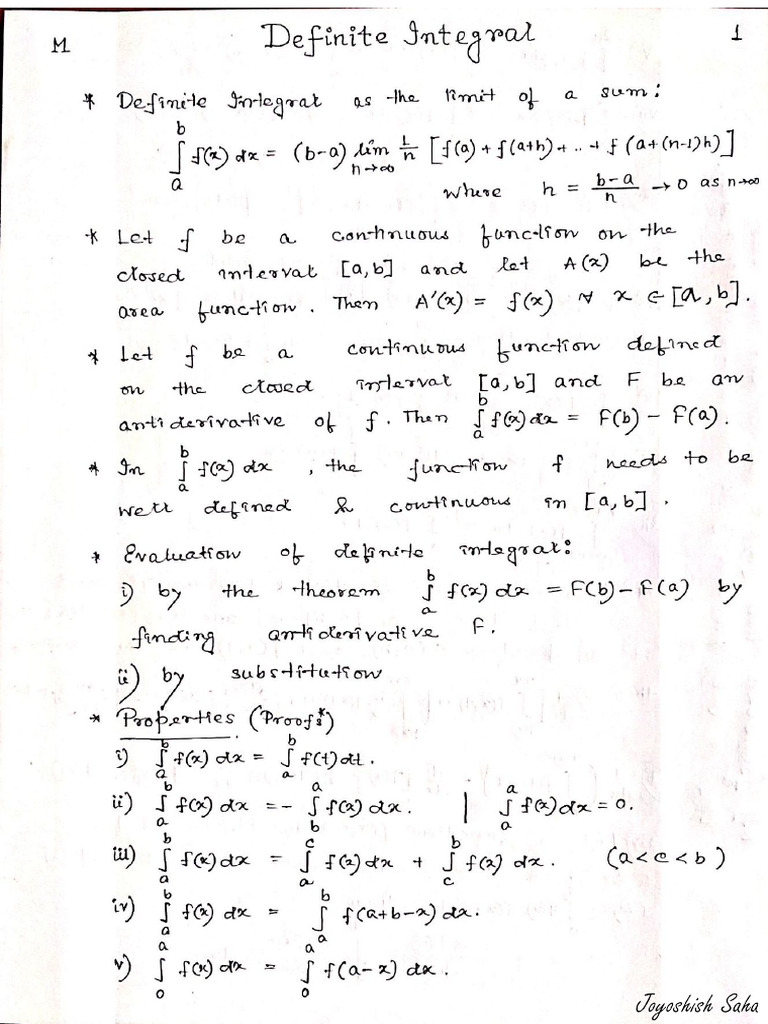 M
Definite Integral
1
* Definite Integral as the limit of a sum:
∫_a^b f(x) dx = (b-a) lim_{n→∞} 1/n [f(a) + f(a+h) + .. + f(a+(n-1)h)]
where h = (b-a)/n → 0 as n→∞
* Let f be a continuous function on the
closed interval [a,b] and let A(x) be the
area function. Then A'(x) = f(x) ∀ x ∈ [a,b].
* Let f be a continuous function defined
on the closed interval [a,b] and F be an
antiderivative of f. Then ∫_a^b f(x) dx = F(b) - F(a).
* In ∫_a^b f(x) dx, the function f needs to be
well defined & continuous in [a,b].
* Evaluation of definite integral:
i) by the theorem ∫_a^b f(x) dx = F(b) - F(a) by
finding antiderivative F.
ii) by substitution
* Properties (Proofs*)
i) ∫_a^b f(x) dx = ∫_a^b f(t) dt.
ii) ∫_a^b f(x) dx = - ∫_b^a f(x) dx. | ∫_a^a f(x) dx = 0.
iii) ∫_a^b f(x) dx = ∫_a^c f(x) dx + ∫_c^b f(x) dx. (a<c<b)
iv) ∫_a^b f(x) dx = ∫_a^b f(a+b-x) dx.
v) ∫_0^a f(x) dx = ∫_0^a f(a-x) dx.
Joyoshish Saha